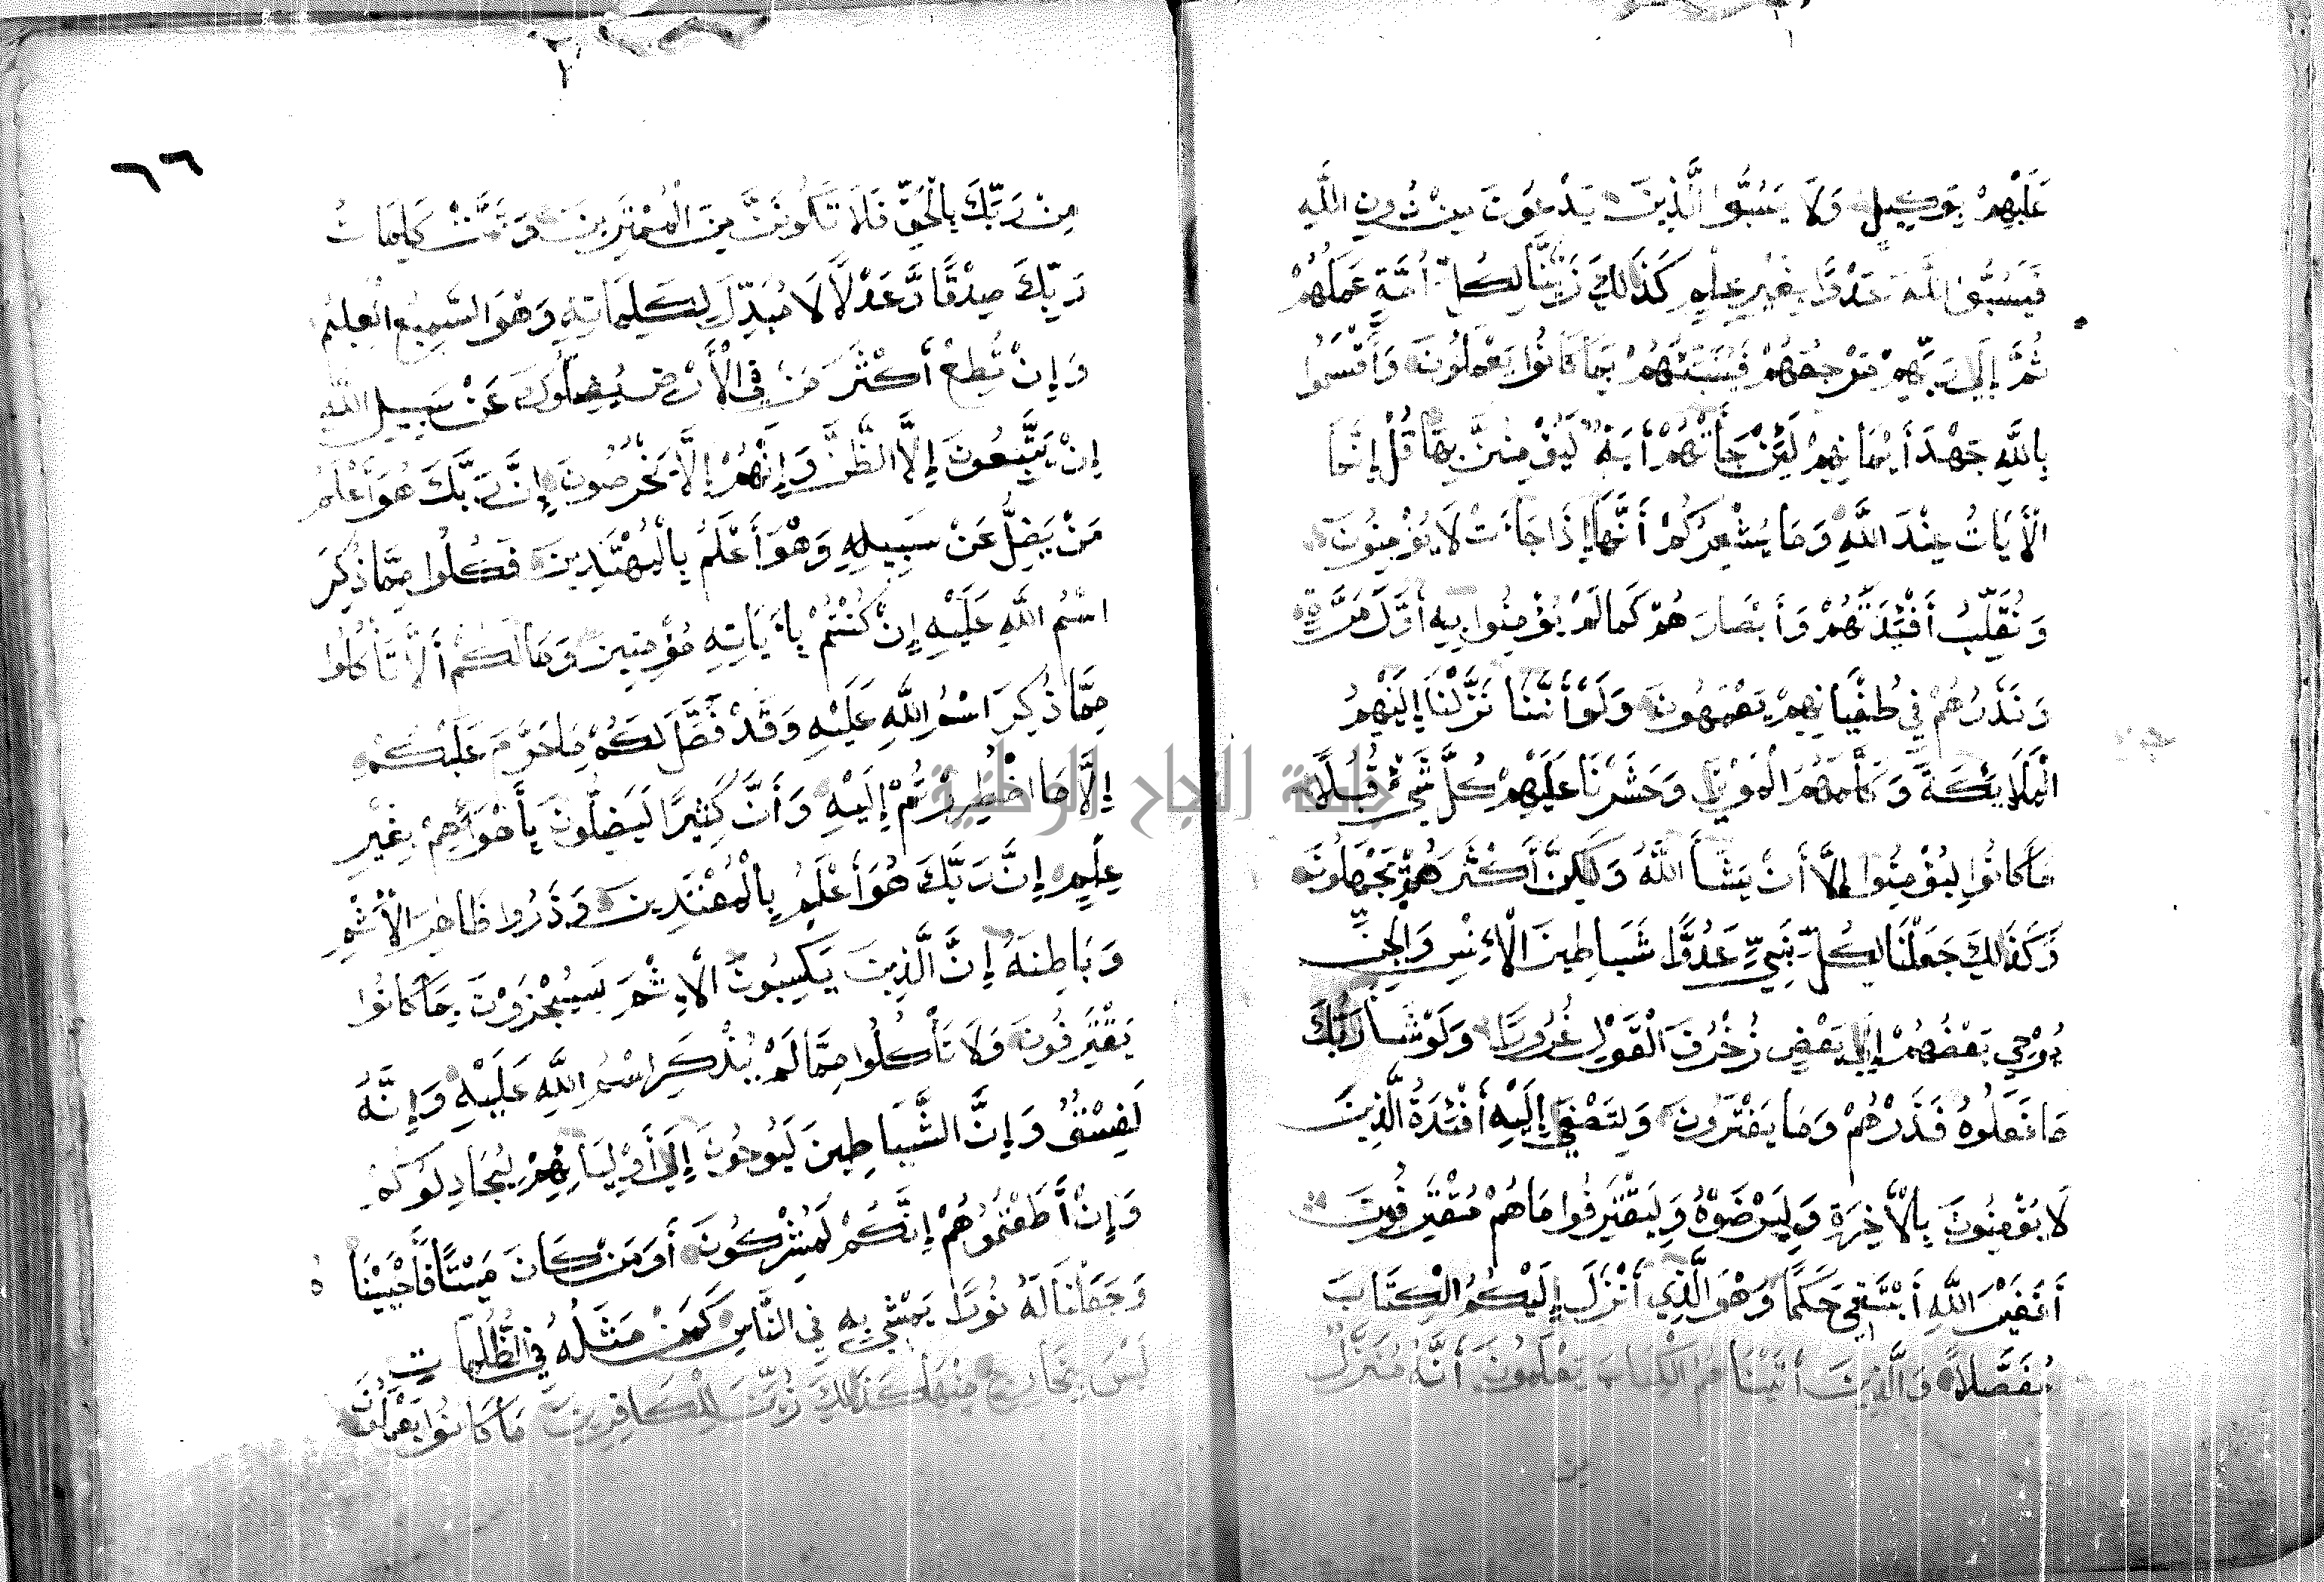 عَلَيْهِمْ بِوَكِيلٍ وَلَا يَسُبُّوا الَّذِينَ يَدْعُونَ مِنْ دُونِ اللَّهِ
فَيَسُبُّوا اللَّهَ عَدْوًا بِغَيْرِ عِلْمٍ كَذَالِكَ زَيَّنَّا لِكُلِّ أُمَّةٍ عَمَلَهُمْ
ثُمَّ إِلَى رَبِّهِمْ مَرْجِعُهُمْ فَيُنَبِّئُهُمْ بِمَا كَانُوا يَعْمَلُونَ وَأَقْسَمُوا
بِاللَّهِ جَهْدَ أَيْمَانِهِمْ لَئِنْ جَأَتْهُمْ أَيَةٌ لَيُؤْمِنُنَّ بِهَا قُلْ إِنَّمَا
الْأَيَاتُ عِنْدَ اللَّهِ وَمَا يُشْعِرُكُمْ أَنَّهَا إِذَا جَأَتْ لَا يُؤْمِنُونَ
وَنُقَلِّبُ أَفْئِدَتَهُمْ وَأَبْصَارَهُمْ كَمَا لَمْ يُؤْمِنُوا بِهِ أَوَّلَ مَرَّةٍ
وَنَذَرُهُمْ فِي طُغْيَانِهِمْ يَعْمَهُونَ وَلَوْ أَنَّنَا نَزَّلْنَا إِلَيْهِمُ
الْمَلَائِكَةَ وَكَلَّمَهُمُ الْمَوْتَى وَحَشَرْنَا عَلَيْهِمْ كُلَّ شَيْءٍ قُبُلًا
مَا كَانُوا لِيُؤْمِنُوا إِلَّا أَنْ يَشَأَ اللَّهُ وَلَكِنَّ أَكْثَرَهُمْ يَجْهَلُونَ
وَكَذَالِكَ جَعَلْنَا لِكُلِّ نَبِيٍّ عَدُوًّا شَيَاطِينَ الْإِنْسِ وَالْجِنِّ
يُوحِي بَعْضُهُمْ إِلَى بَعْضٍ زُخْرُفَ الْقَوْلِ غُرُورًا وَلَوْ شَأَ رَبُّكَ
مَا فَعَلُوهُ فَذَرْهُمْ وَمَا يَفْتَرُونَ وَلِتَصْغَى إِلَيْهِ أَفْئِدَةُ الَّذِينَ
لَا يُؤْمِنُونَ بِالْأَخِرَةِ وَلِيَرْضَوْهُ وَلِيَقْتَرِفُوا مَا هُمْ مُقْتَرِفُونَ
أَفَغَيْرَ اللَّهِ أَبْتَغِي حَكَمًا وَهْوَ الَّذِي أَنْزَلَ إِلَيْكُمُ الْكِتَابَ
مُفَصَّلًا وَالَّذِينَ أَتَيْنَاهُمُ الْكِتَابَ يَعْلَمُونَ أَنَّهُ مُنَزَّلٌ
٦٦
مِنْ رَبِّكَ بِالْحَقِّ فَلَا تَكُونَنَّ مِنَ الْمُمْتَرِينَ وَتَمَّتْ كَلِمَاتُ
رَبِّكَ صِدْقًا وَعَدْلًا لَا مُبَدِّلَ لِكَلِمَاتِهِ وَهْوَ السَّمِيعُ الْعَلِيمُ
وَإِنْ تُطِعْ أَكْثَرَ مَنْ فِي الْأَرْضِ يُضِلُّوكَ عَنْ سَبِيلِ اللَّهِ
إِنْ يَتَّبِعُونَ إِلَّا الظَّنَّ وَإِنْ هُمْ إِلَّا يَخْرُصُونَ إِنَّ رَبَّكَ هُوَ أَعْلَمُ
مَنْ يَضِلُّ عَنْ سَبِيلِهِ وَهْوَ أَعْلَمُ بِالْمُهْتَدِينَ فَكُلُوا مِمَّا ذُكِرَ
اسْمُ اللَّهِ عَلَيْهِ إِنْ كُنْتُمْ بِأَيَاتِهِ مُؤْمِنِينَ وَمَا لَكُمْ أَلَّا تَأْكُلُوا
مِمَّا ذُكِرَ اسْمُ اللَّهِ عَلَيْهِ وَقَدْ فَصَّلَ لَكُمْ مَا حَرَّمَ عَلَيْكُمْ
إِلَّا مَا اضْطُرِرْتُمْ إِلَيْهِ وَأَنَّ كَثِيرًا لَيَضِلُّونَ بِأَهْوَائِهِمْ بِغَيْرِ
عِلْمٍ إِنَّ رَبَّكَ هُوَ أَعْلَمُ بِالْمُعْتَدِينَ وَذَرُوا ظَاهِرَ الْأِثْمِ
وَبَاطِنَهُ إِنَّ الَّذِينَ يَكْسِبُونَ الْإِثْمَ سَيُجْزَوْنَ بِمَا كَانُوا
يَقْتَرِفُونَ وَلَا تَأْكُلُوا مِمَّا لَمْ يُذْكَرِ اسْمُ اللَّهِ عَلَيْهِ وَإِنَّهُ
لَفِسْقٌ وَإِنَّ الشَّيَاطِينَ لَيُوحُونَ إِلَى أَوْلِيَائِهِمْ لِيُجَادِلُوكُمْ
وَإِنْ أَطَعْتُمُوهُمْ إِنَّكُمْ لَمُشْرِكُونَ أَوَمَنْ كَانَ مَيْتًا فَأَحْيَيْنَاهُ
وَجَعَلْنَا لَهُ نُورًا يَمْشِي بِهِ فِي النَّاسِ كَمَنْ مَثَلُهُ فِي الظُّلُمَاتِ
لَيْسَ بِخَارِجٍ مِنْهَا كَذَالِكَ زُيِّنَ لِلْكَافِرِينَ مَا كَانُوا يَعْمَلُونَ
جامعة النجاح الوطنية